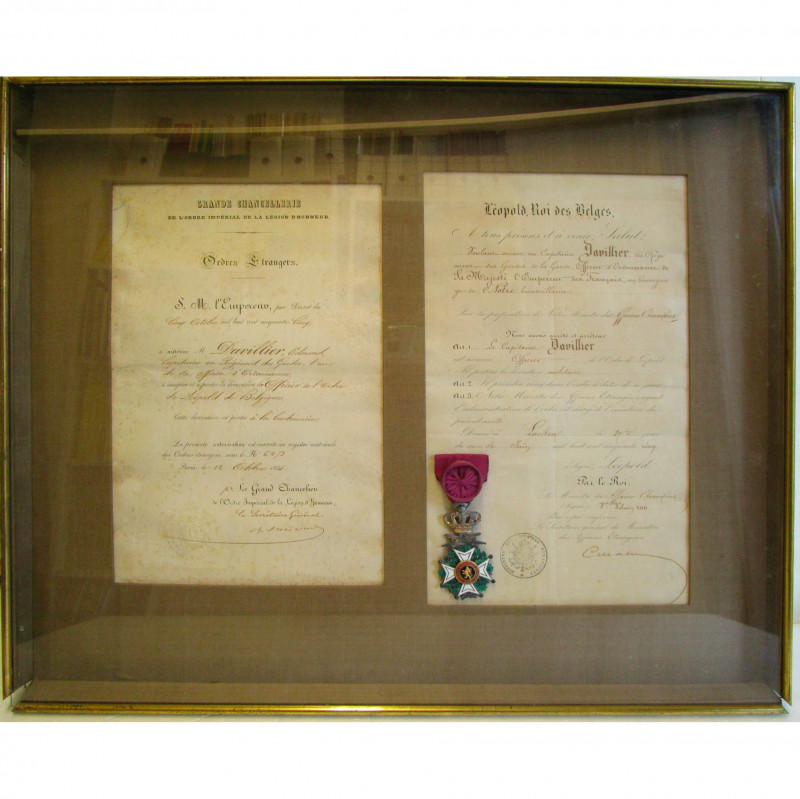 GRANDE CHANCELLERIE
DE L'ORDRE IMPÉRIAL DE LA LÉGION D'HONNEUR.
Ordres Étrangers.
S. M. l'Empereur, par Décret du
Cinq Octobre mil huit cent cinquante cinq,
a autorisé M. Davillier, Edmond,
Capitaine au Régiment des Guides, l'un
de ses officiers d'Ordonnance,
à accepter et à porter la décoration d'Officier de l'Ordre
de Léopold de Belgique
Cette décoration est portée à la boutonnière
La présente autorisation est inscrite au registre matricule
des Ordres étrangers, sous le N°
Paris, le 12 Octobre
pr Le Grand Chancelier
de l'Ordre Impérial de la Légion d'Honneur,
Le Secrétaire Général
Léopold, Roi des Belges,
A tous présens et à venir, Salut.
Voulant donner au Capitaine Davillier, du Régi
ment des Guides de la Garde, Officier d'Ordonnance de
Sa Majesté l'Empereur des Français, un témoignage
de Notre bienveillance
Sur la proposition de Notre Ministre des Affaires Étrangères,
Nous avons arrêté et arrêtons
Art. 1. Le Capitaine Davillier
est nommé Officier de l'Ordre de Léopold
Il portera la décoration militaire.
Art. 2. Il prendra rang dans l'ordre à dater de ce jour.
Art. 3. Notre Ministre des Affaires Étrangères ayant
l'administration de l'ordre est chargé de l'exécution du
présent arrêté
Donné à Laeken, le jour
du mois de Juin mil huit cent cinquante cinq
Signé, Léopold
Par le Roi:
Le Ministre des Affaires Étrangères
Signé, Vte Vilain XIIII
Le Secrétaire général du Ministère
des Affaires Étrangères